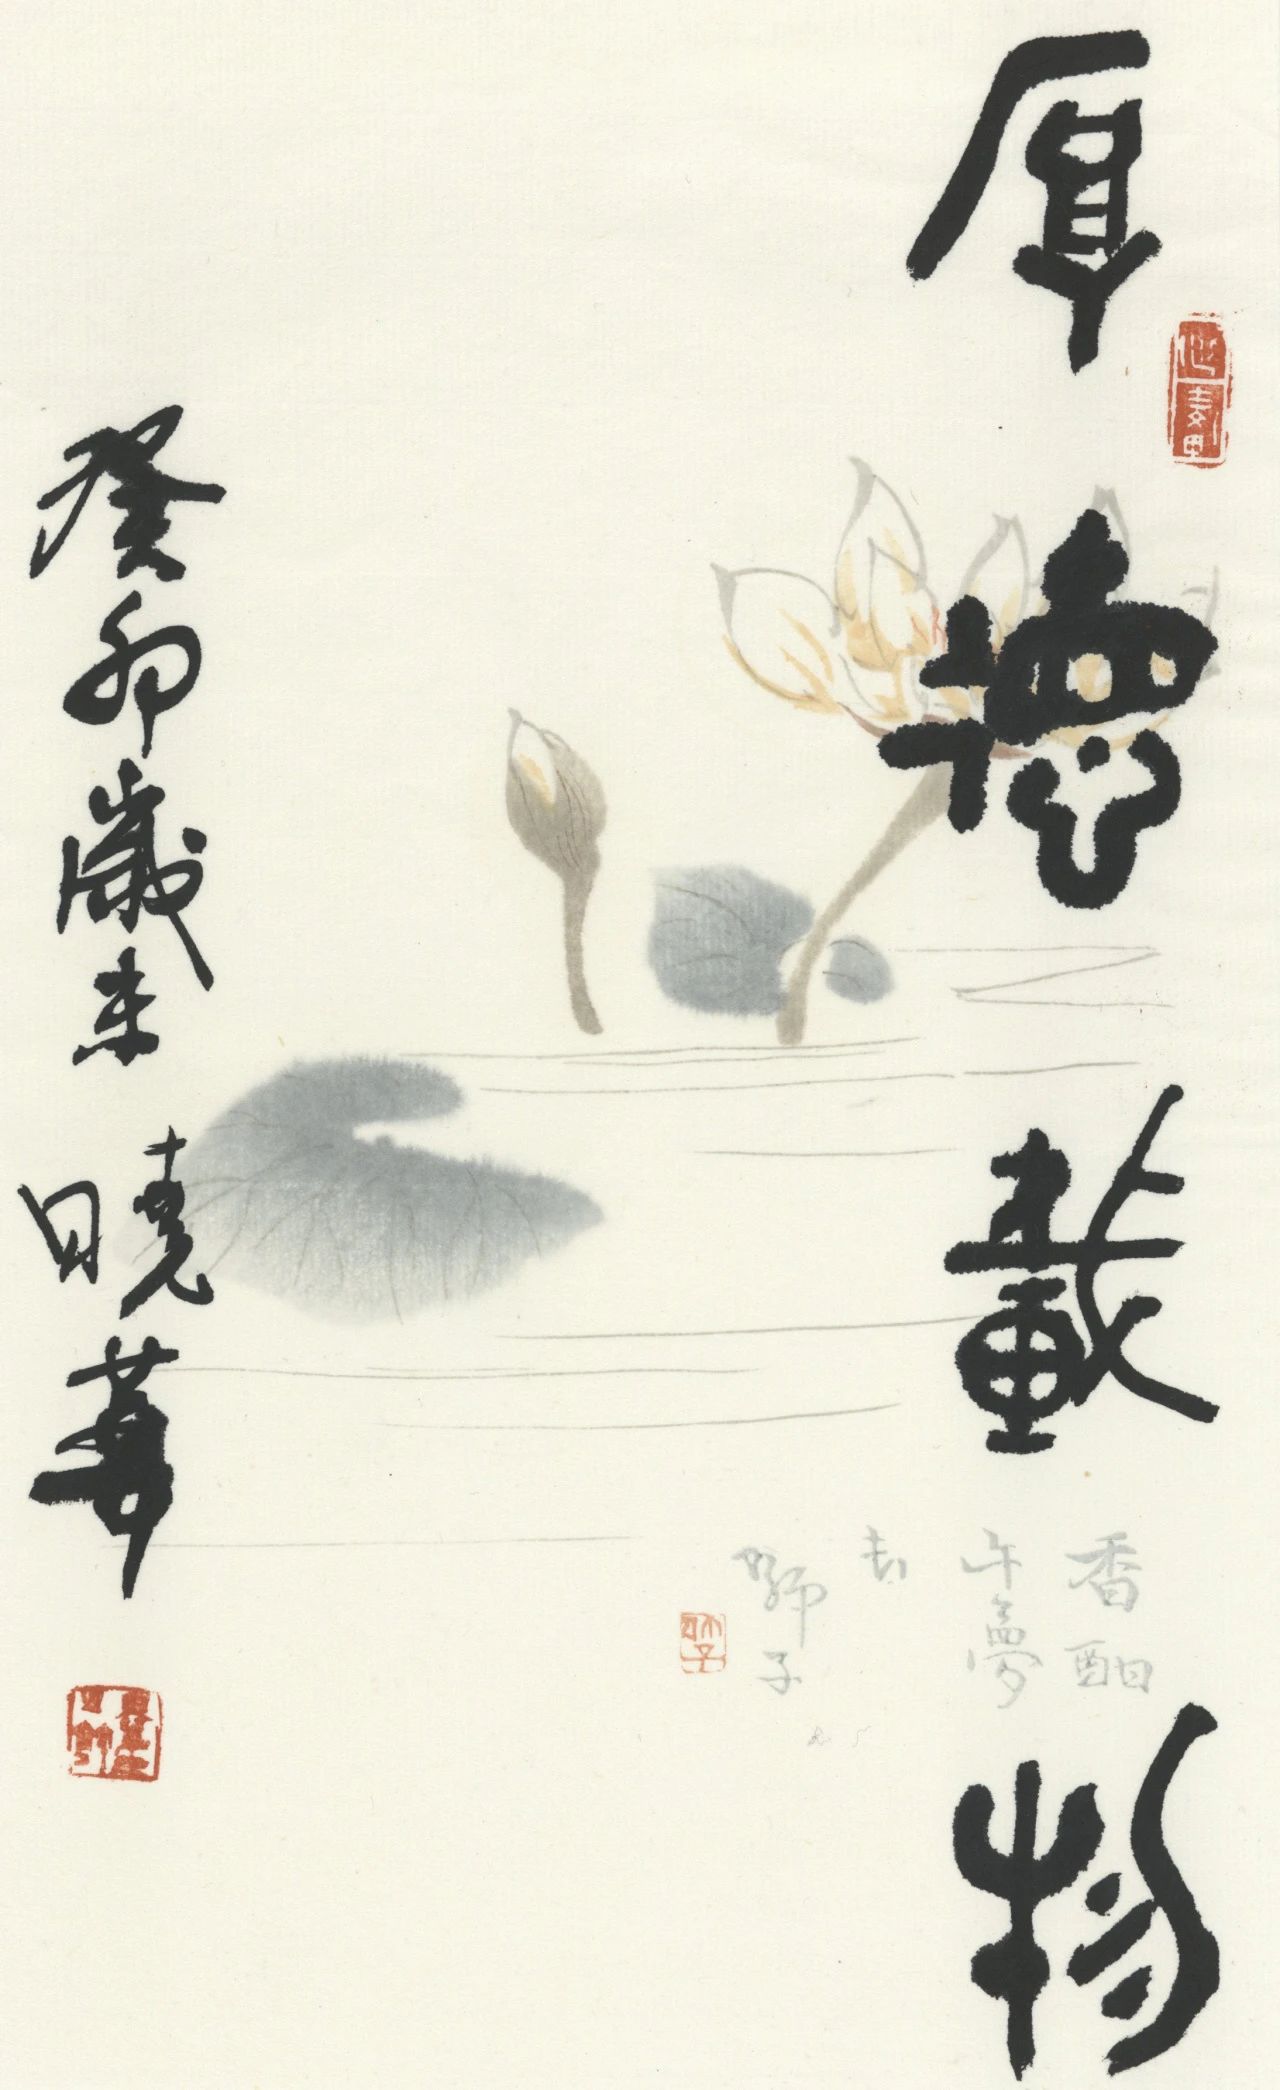 厚德載物
癸卯歲末 曉華
香酣
午夢